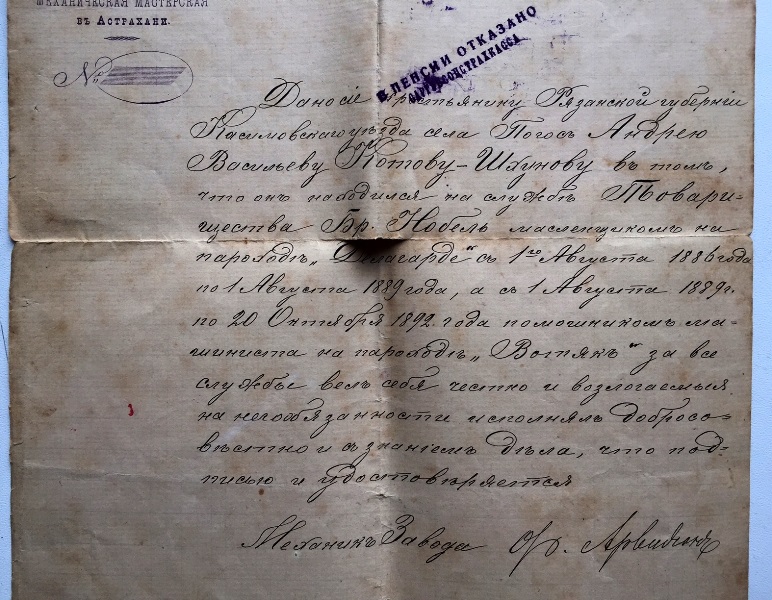 МЕХАНИЧЕСКАЯ МАСТЕРСКАЯ
въ Астрахани.
№
В ПЕНСИИ ОТКАЗАНО
Дано сіе крестьянину Рязанской губерніи
Касимовскаго уѣзда села Погосъ Андрею
Васильеву Котову-Шхунову въ томъ,
что онъ находился на службѣ Товари-
щества Бр. Нобель масленщикомъ на
пароходѣ „Делагарде" съ 1го Августа 1886 года
по 1 Августа 1889 года, а съ 1 Августа 1889 г.
по 20 Октября 1892 года помошникомъ ма-
шиниста на пароходѣ „Вотякъ" за все
службы велъ себя честно и возлогаемыя
на него обязанности исполнялъ добросо-
вѣстно и съ знаніемъ дѣла, что под-
писью и удостовѣряется
Механикъ Завода Ф.